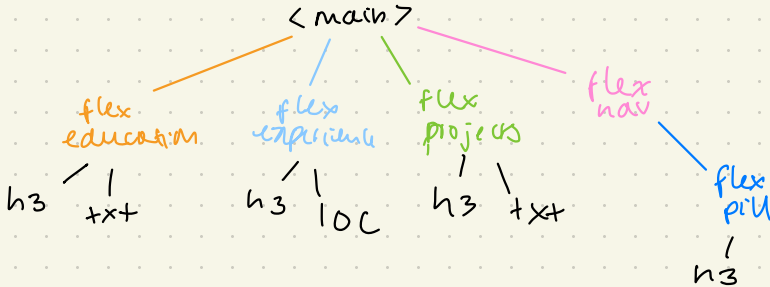 <main>
flex
education
h3
txt
flex
experience
h3
loc
flex
projects
h3
txt
flex
nav
flex
pill
h3